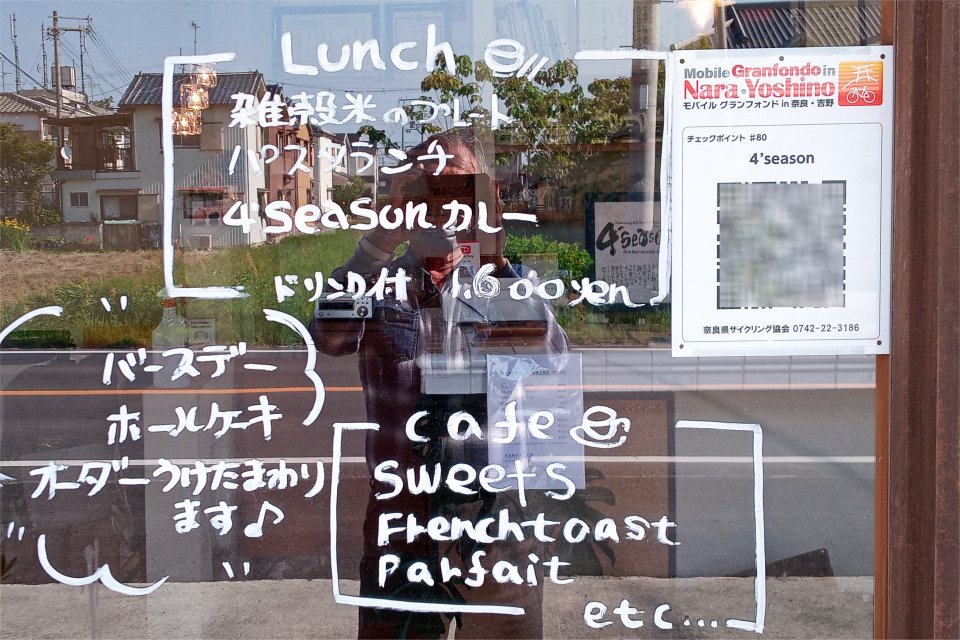 Lunch
雑穀米のプレート
パスタランチ
4'seasonカレー
ドリンク付 1,600yen
バースデー
ホールケーキ
オーダーうけたまわり
ます♪
cafe
Sweets
Frenchtoast
Parfait
etc...
Mobile Granfondo in
Nara・Yoshino
モバイル グランフォンド in 奈良・吉野
チェックポイント #80
4'season
奈良県サイクリング協会 0742-22-3186
4'season